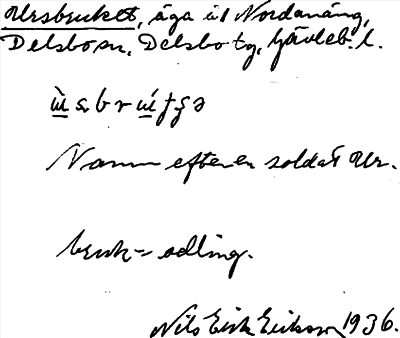 Ursbruket, äga åt Nordanäng,
Delsbo sn, Delsbo tg, Gävleb. l.
Namn efter en soldat Ur.
bruk = odling.
Nils Erik Erikson 1936.